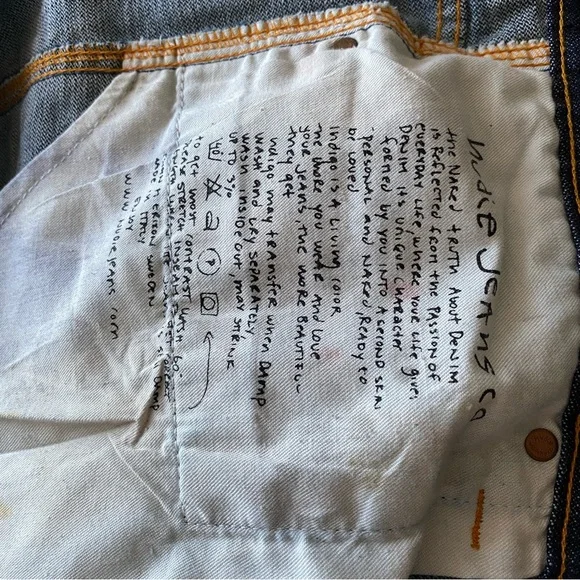 Nudie Jeans Co
the Naked truth About Denim
is Reflected from the Passion of
everyday life, where Your life gives
Denim its unique character
formed by you into a second skin
personal and naked, ready to
be loved
Indigo is a living color
the more you wear and love
your jeans the more beautiful
they get
Indigo may transfer when damp
wash and dry separately,
wash inside out, may shrink
up to 3%
40 P
to get most contrast wash
www.nudiejeans.com